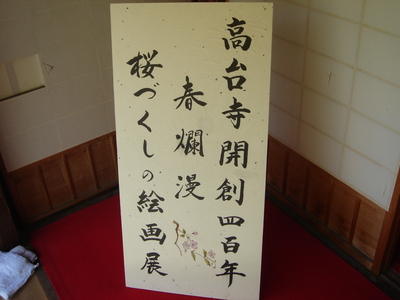 高台寺開創四百年
春爛漫
桜づくしの絵画展